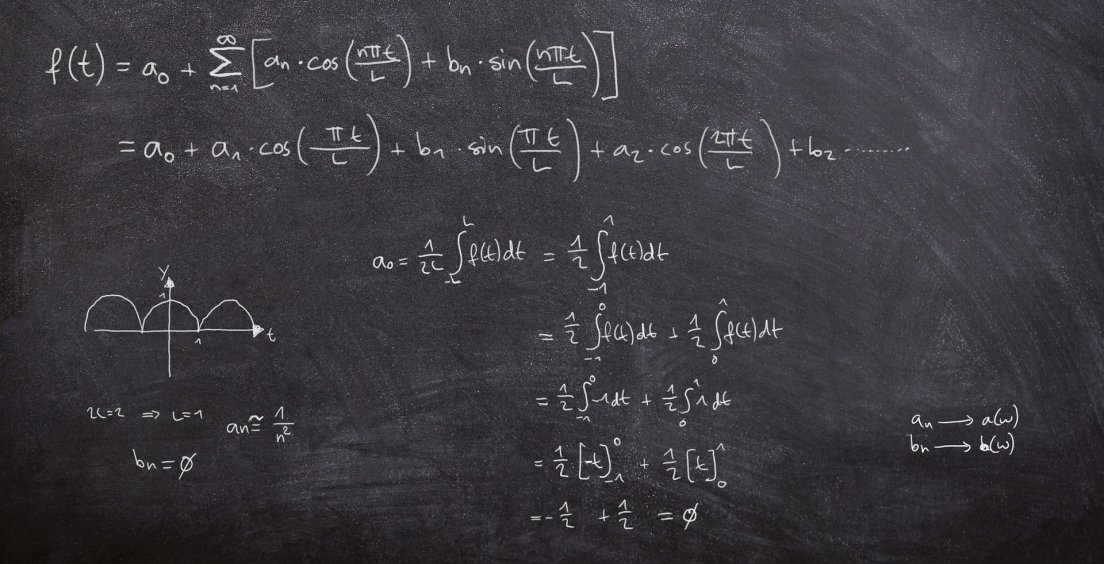 f(t) = a₀ + ∑ₙ₌₁^∞ [aₙ · cos(nπt/L) + bₙ · sin(nπt/L)]
= a₀ + a₁ · cos(πt/L) + b₁ · sin(πt/L) + a₂ · cos(2πt/L) + b₂ ........
a₀ = 1/2L ∫₋L^L f(t)dt = 1/2 ∫₋₁^1 f(t)dt
= 1/2 ∫₋₁^0 f(t)dt + 1/2 ∫₀^1 f(t)dt
= 1/2 ∫₋₁^0 -1dt + 1/2 ∫₀^1 1dt
= 1/2 [-t]₋₁^0 + 1/2 [t]₀^1
= -1/2 + 1/2 = ∅
y
1
1
t
2L=2 ⇒ L=1
aₙ ≅ 1/n²
bₙ = ∅
aₙ → a(ω)
bₙ → b(ω)